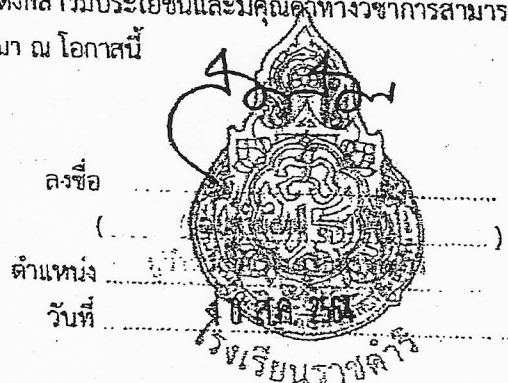 ดังกล่าวมีประโยชน์และมีคุณค่าทางวิชาการสามาร
มา ณ โอกาสนี้
ลงชื่อ
(                    )
ตำแหน่ง
วันที่ 10 ส.ค. 2564
โรงเรียนราชดำริ